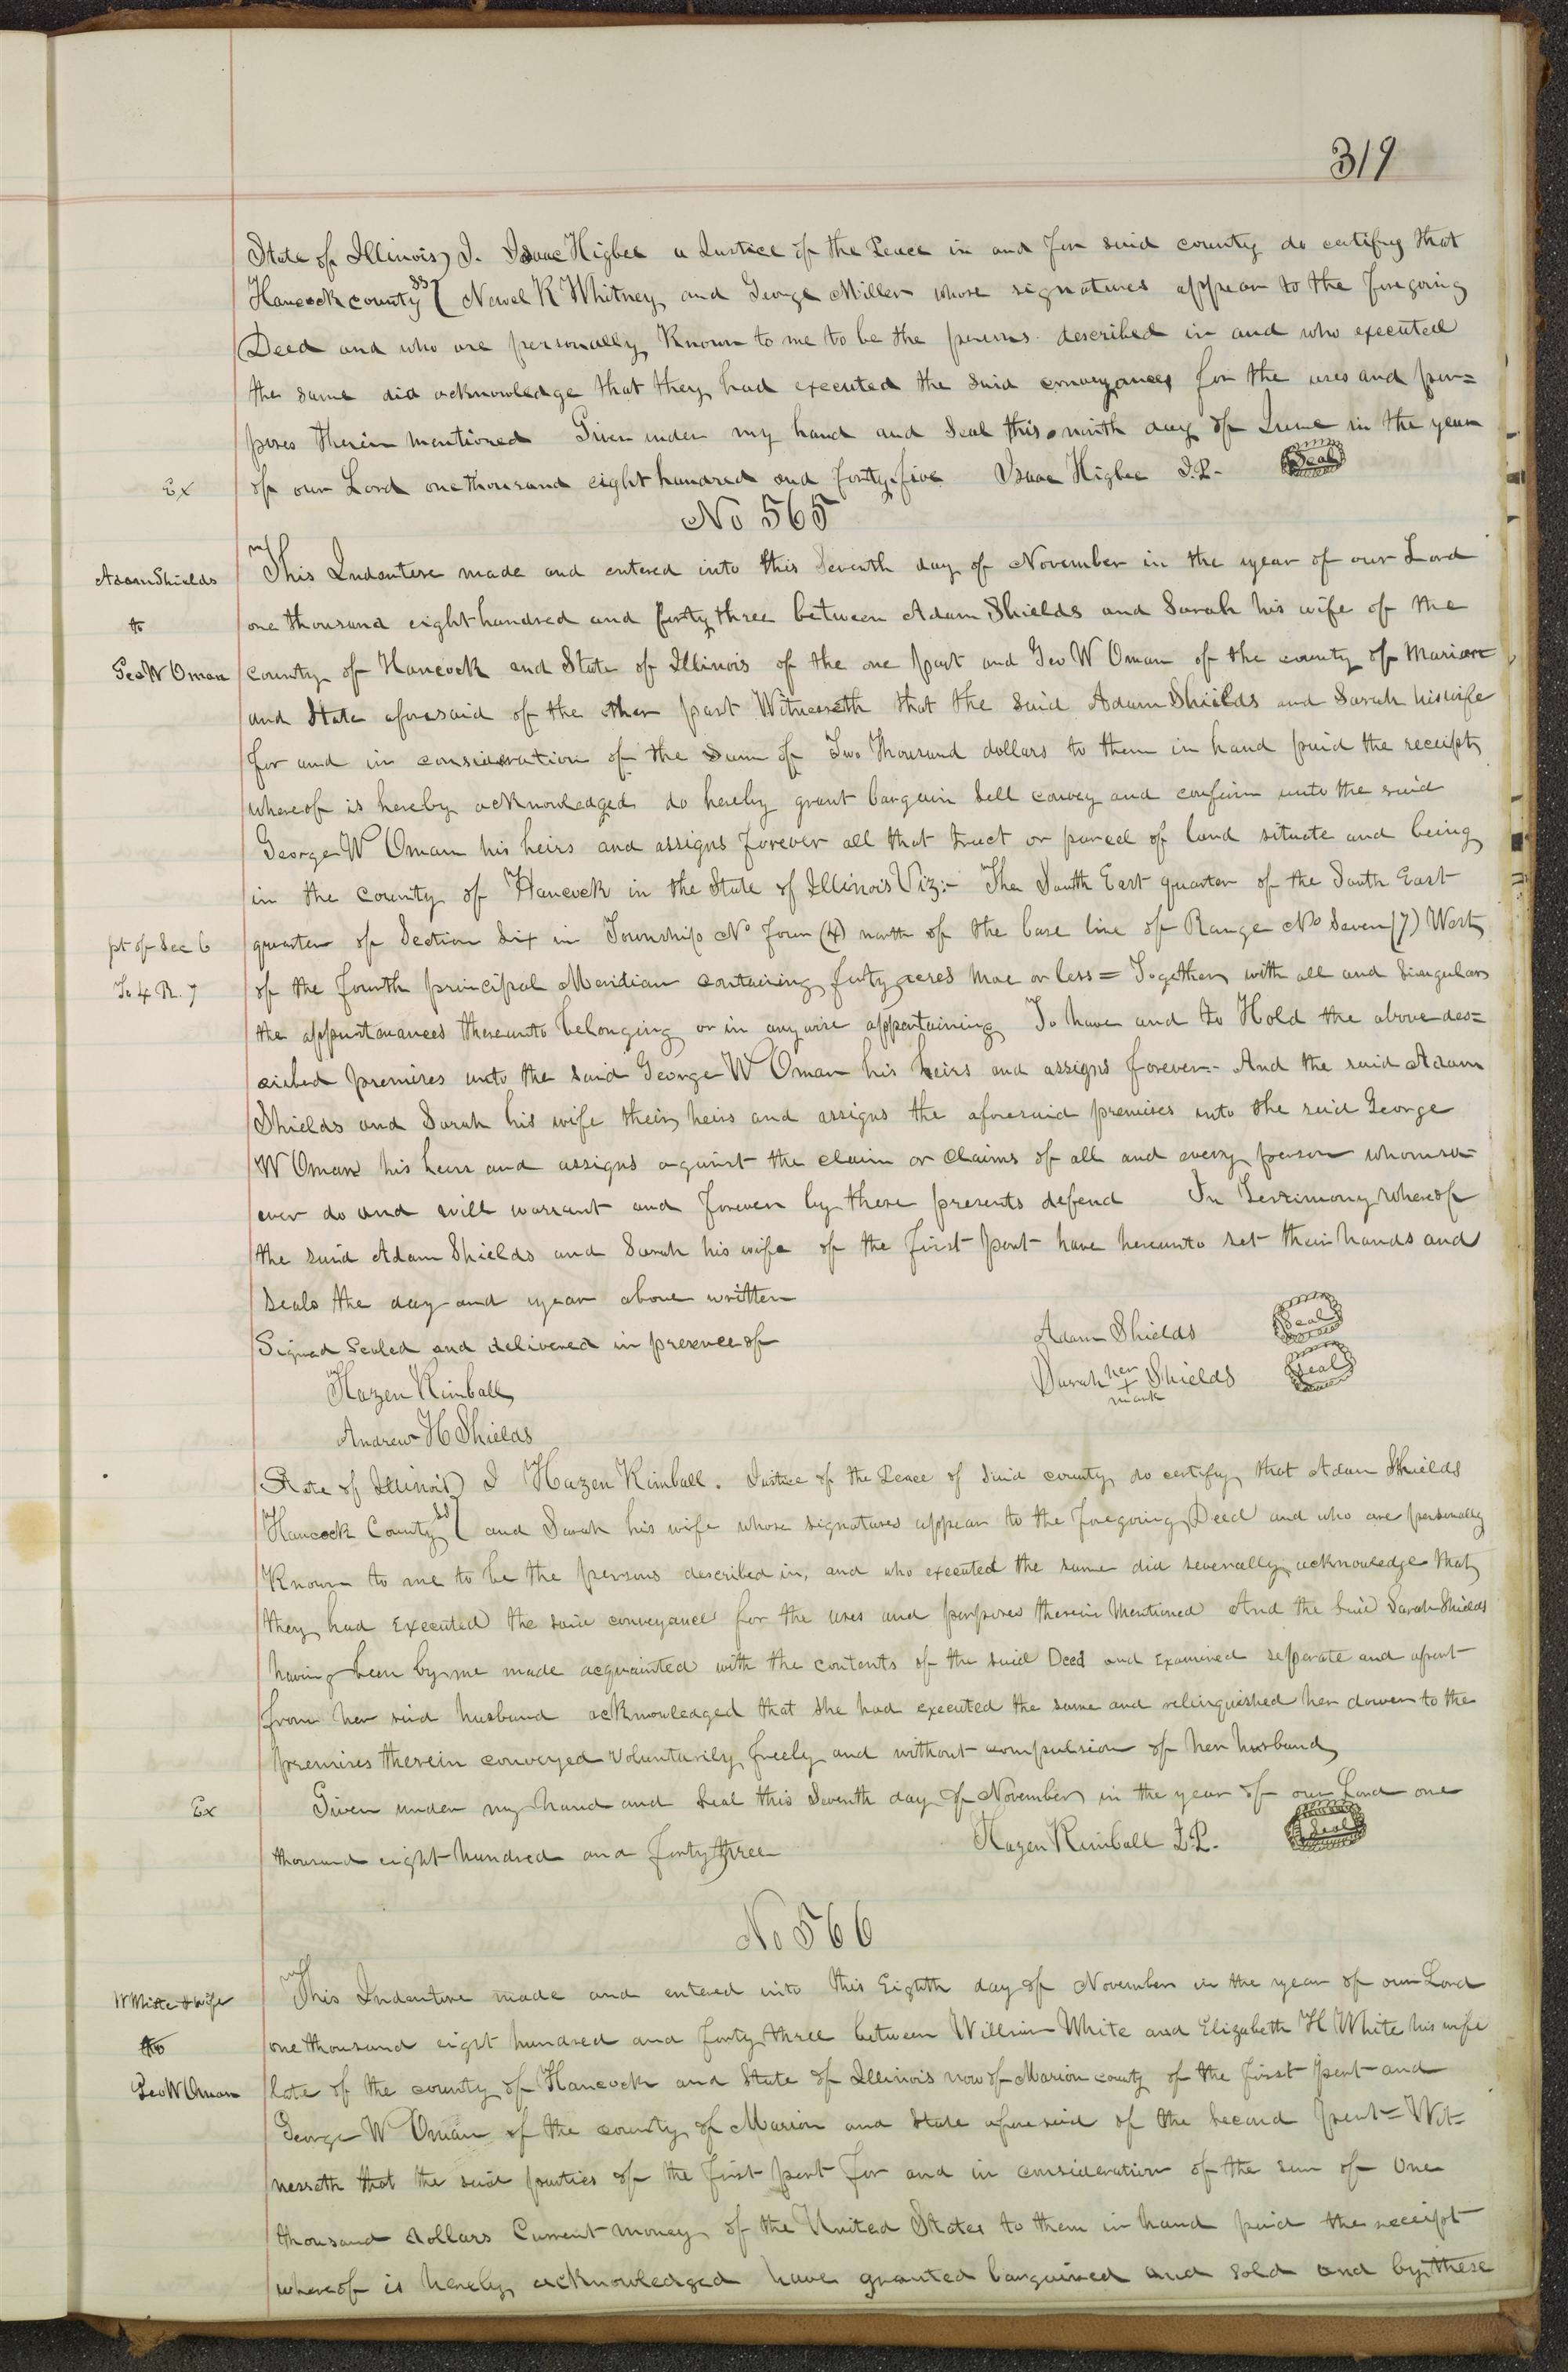 319
State of Illinois) I. Isaac Higbee a Justice of the Peace in and for said county do certify that
Hancock county ss { Newel K Whitney and George Miller whose signatures appear to the foregoing
Deed and who are personally Known to me to be the persons described in and who executed
the same did acknowledge that they had executed the said conveyances for the uses and pur=
poses therein mentioned Given under my hand and Seal this ninth day of June in the year
Ex of our Lord one thousand eight hundred and forty five Isaac Higbee J.P. Seal
No 565
Adam Shields This Indenture made and entered into this Seventh day of November in the year of our Lord
to one thousand eight hundred and forty three between Adam Shields and Sarah his wife of the
Geo W Oman county of Hancock and State of Illinois of the one part and Geo W Oman of the county of Marion
and State aforesaid of the other part Witnesseth that the said Adam Shields and Sarah his wife
for and in consideration of the sum of Two Thousand dollars to them in hand paid the receipt
whereof is hereby acknowledged do hereby grant bargain Sell convey and confirm unto the said
George W Oman his heirs and assigns forever all that tract or parcel of land situate and being
in the county of Hancock in the State of Illinois Viz:- The South East quarter of the South East
pt of Sec 6 quarter of Section Six in Township No four (4) north of the base line of Range No Seven (7) West
To 4 R. 7 of the fourth principal Meridian containing forty acres more or less = Together with all and Singular
the appurtanances thereunto belonging or in anywise appertaining To have and to Hold the above des=
cribed premises unto the said George W Oman his heirs and assigns forever.- And the said Adam
Shields and Sarah his wife their heirs and assigns the aforesaid premises unto the said George
W Oman his heirs and assigns against the claim or claims of all and every person whomso=
ever do and will warrant and forever by these presents defend In Testimony whereof
the said Adam Shields and Sarah his wife of the first part have hereunto set their hands and
Seals the day and year above written
Signed Sealed and delivered in presence of Adam Shields Seal
Hazen Kimball Sarah her + mark Shields Seal
Andrew H Shields
State of Illinois) I Hazen Kimball. Justice of the Peace of said county do certify that Adam Shields
Hancock County ss { and Sarah his wife whose signatures appear to the foregoing Deed and who are personally
Known to me to be the persons described in, and who executed the same did severally acknowledge that
they had Executed the said conveyance for the uses and purposes therein Mentioned And the said Sarah Shields
having been by me made acquainted with the contents of the said Deed and Examined seperate and apart
from her said husband acknowledged that she had executed the same and relinquished her dower to the
premises therein conveyed voluntarily freely and without compulsion of her husband
Ex Given under my hand and Seal this Seventh day of November in the year of our Lord one
thousand eight hundred and forty three Hazen Kimball J.P. Seal
No 566
W White & wife This Indenture made and entered into this Eighth day of November in the year of our Lord
to one thousand eight hundred and forty three between William White and Elizabeth H White his wife
Geo W Oman late of the county of Hancock and State of Illinois now of Marion county of the first part and
George W Oman of the county of Marion and State aforesaid of the Second part = Wit=
nesseth that the said parties of the first part for and in consideration of the sum of One
thousand dollars Current money of the United States to them in hand paid the receipt
whereof is hereby acknowledged have granted bargained and sold and by these